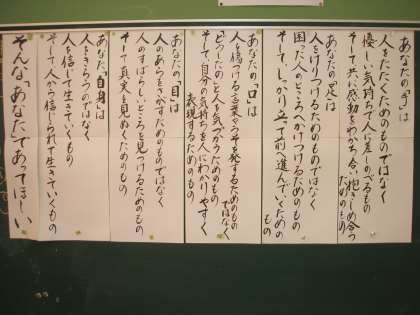 あなたの「手」は
人をたたくためのものではなく
優しい気持ちで人に差しのべるもの
そして共に感動をわかち合い抱きしめ合う
ためのもの
あなたの「足」は
人をけりつけるためのものではなく
困った人のところへかけつけるためのもの
そして、しっかり立って前へ進んでいくための
もの
あなたの「口」は
人を傷つける言葉やうそを発するためのもの
ではなく
「どうしたの」と人を気づかうためのもの
そして自分の気持ちを人にわかりやすく
表現するためのもの
あなたの「目」は
人のあらをさがすためのものではなく
人のすばらしいところを見つけるためのもの
そして真実を見ぬくためのもの
あなた「自身」は
人をきらうのではなく
人を信じて生きていくもの
そして人から信じられて生きていくもの
そんな「あなた」であってほしい